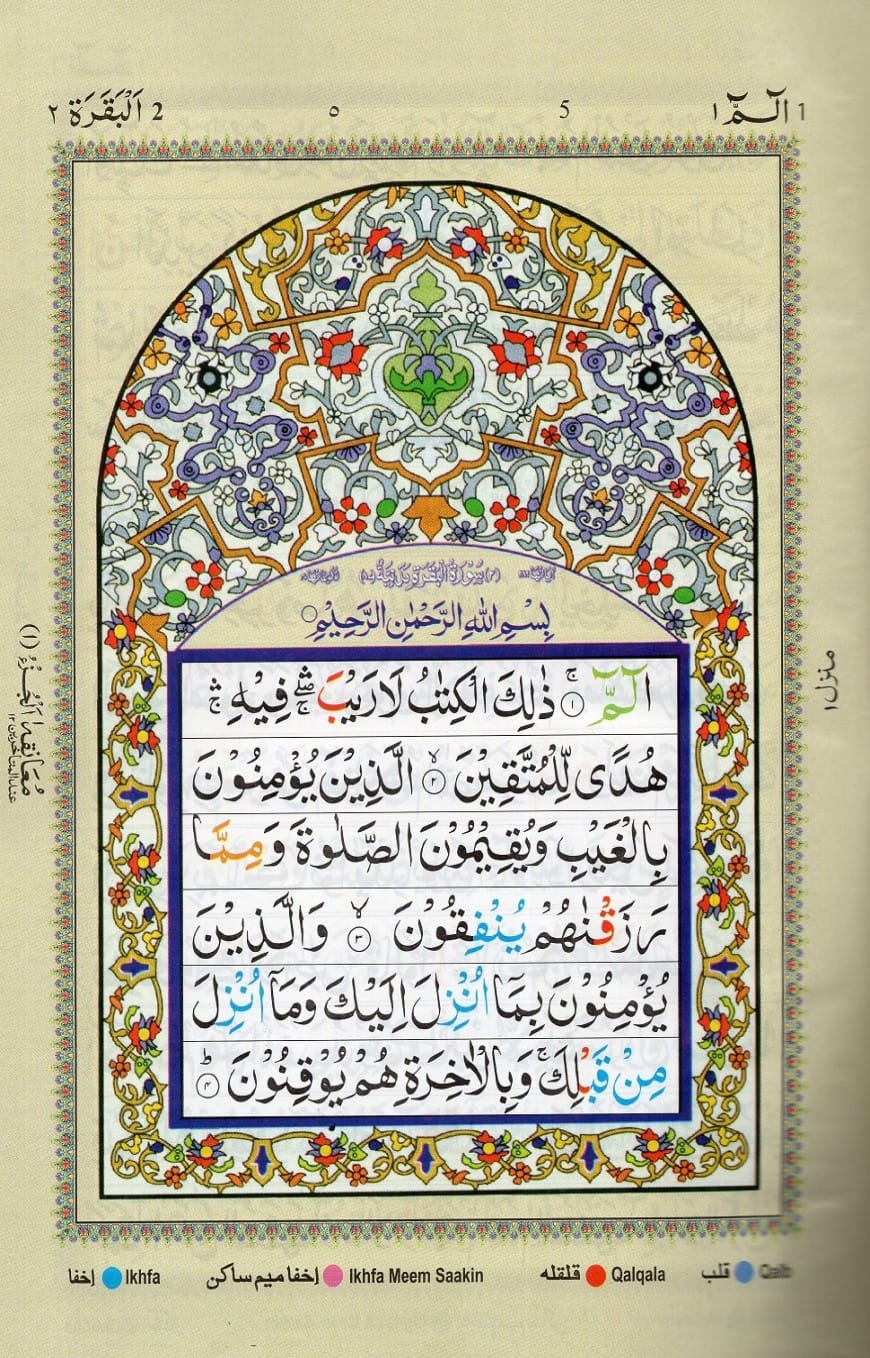 1 الٓـمّٓ ١ 5 ٥ 2 اَلْبَقَرَة ٢
سُوْرَةُ الْبَقَرَةِ مَدَنِيَّةٌ
بِسْمِ اللّٰهِ الرَّحْمٰنِ الرَّحِيْمِ
الٓمّٓ ۚ ۝١ ذٰلِكَ الْكِتٰبُ لَا رَيْبَ ۛۖۚ فِيْهِ ۛۚ
هُدًى لِّلْمُتَّقِيْنَ ۙ ۝٢ الَّذِيْنَ يُؤْمِنُوْنَ
بِالْغَيْبِ وَيُقِيْمُوْنَ الصَّلٰوةَ وَمِمَّا
رَزَقْنٰهُمْ يُنْفِقُوْنَ ۙ ۝٣ وَالَّذِيْنَ
يُؤْمِنُوْنَ بِمَآ اُنْزِلَ اِلَيْكَ وَمَآ اُنْزِلَ
مِنْ قَبْلِكَ ۚ وَبِالْاٰخِرَةِ هُمْ يُوْقِنُوْنَ ؕ ۝٤
منزل ١
مُعَانقه ١ اَلْجُزْءُ (١)
عند المتاخرين ١٢
Qalb قلب
Qalqala قلقله
Ikhfa Meem Saakin إخفا ميم ساكن
Ikhfa إخفا